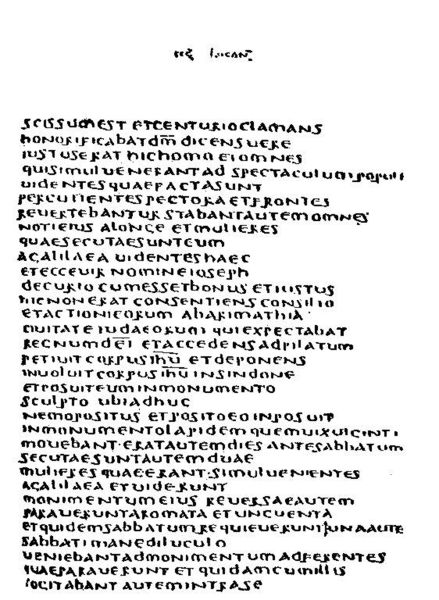 sec lucan̅
SCISSUM EST ET CENTURIO CLAMANS
HONORIFICABAT D̅M̅ DICENS UERE
IUSTUS ERAT HIC HOMO ET OMNES
QUI SIMUL UENERANT AD SPECTACULUM POPULI
UIDENTES QUAE FACTA SUNT
PERCUTIENTES PECTORA ET FRONTES
REUERTEBANTUR STABANT AUTEM OMNES
NOTI EIUS A LONGE ET MULIERES
QUAE SECUTAE SUNT EUM
A GALILAEA UIDENTES HAEC
ET ECCE UIR NOMINE IOSEPH
DECURIO CUM ESSET BONUS ET IUSTUS
HIC NON ERAT CONSENTIENS CONSILIO
ET ACTIONI EORUM AB ARIMATHIA
CIUITATE IUDAEORUM QUI EXPECTABAT
REGNUM D̅E̅I̅ ET ACCEDENS AD PILATUM
PETIUIT CORPUS I̅H̅U̅ ET DEPONENS
INUOLUIT CORPUS I̅H̅U̅ IN SINDONE
ET POSUIT EUM IN MONUMENTO
SCULPTO UBI ADHUC
NEMO POSITUS ET POSITO EO INPOSUIT
IN MONUMENTO LAPIDEM QUEM UIX UIGINTI
MOUEBANT·ERAT AUTEM DIES ANTE SABBATUM
SECUTAE SUNT AUTEM DUAE
MULIERES QUAE ERANT·SIMUL UENIENTES
A GALILAEA ET UIDERUNT
MONIMENTUM EIUS REUERSAE AUTEM
PARAUERUNT AROMATA ET UNGUENTA
ET QUIDEM SABBATUM REQUIEUERUNT UNA AUTE
SABBATI MANE DILUCULO
UENIEBANT AD MONIMENTUM ADFERENTES
QUAE PARAUERUNT ET QUIDAM CUM ILLIS
COGITABANT AUTEM INTRA SE